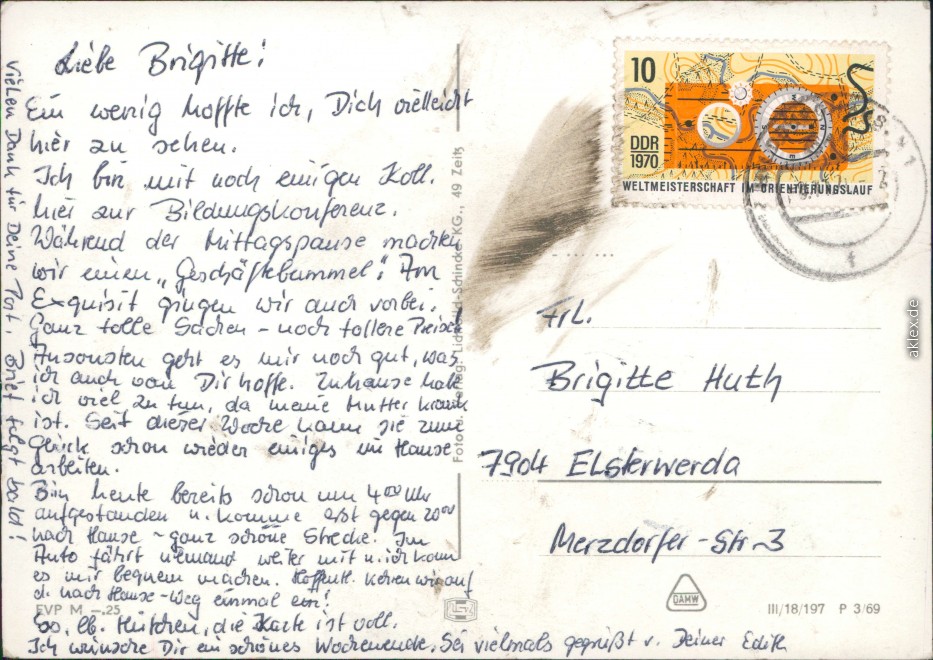 Liebe Brigitte!
Ein wenig hoffte ich, Dich vielleicht
hier zu sehen.
Ich bin mit noch einigen Koll.
hier zur Bildungskonferenz.
Während der Mittagspause machten
wir einen „Geschäftebummel“. Im
Exquisit gingen wir auch vorbei.
Ganz tolle Sachen – noch tollere Preise!
Ansonsten geht es mir noch gut, was
ich auch von Dir hoffe. Zuhause habe
ich viel zu tun, da meine Mutter krank
ist. Seit dieser Woche kann sie zum
Glück schon wieder einiges im Hause
arbeiten.
Bin heute bereits schon um 4⁰⁰ Uhr
aufgestanden u. komme erst gegen 20⁰⁰
nach Hause – ganz schöne Strecke. Im
Auto fährt niemand weiter mit u. ich kann
es mir bequem machen. Hoffentl. kehren wir auf
d. nach Hause-Weg einmal ein!
So, lb. Hütchen, die Karte ist voll.
Ich wünsche Dir ein schönes Wochenende. Sei vielmals gegrüßt v. Deiner Edith
Vielen Dank für Deine Post. Brief folgt bald!
EVP M –.25
KG., 49 Zeitz
10
DDR
1970
WELTMEISTERSCHAFT IM ORIENTIERUNGSLAUF
Frl.
Brigitte Huth
7904 Elsterwerda
Merzdorfer-Str. 3
DAMW
III/18/197 P 3/69
aklex.de